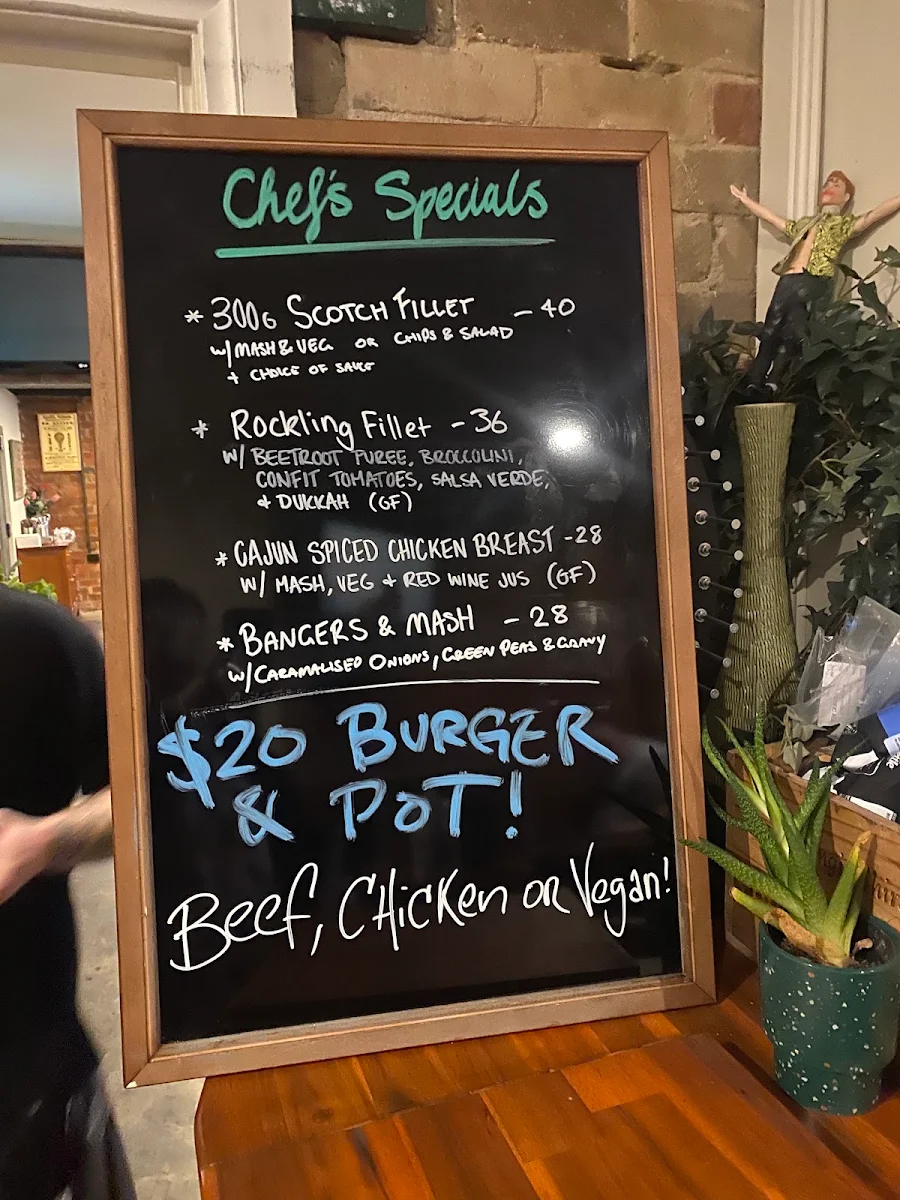 Chef's Specials
* 300G SCOTCH FILLET - 40
W/ MASH & VEG OR CHIPS & SALAD
+ CHOICE OF SAUCE
* Rockling Fillet - 36
W/ BEETROOT PUREE, BROCCOLINI,
CONFIT TOMATOES, SALSA VERDE,
& DUKKAH (GF)
* CAJUN SPICED CHICKEN BREAST - 28
W/ MASH, VEG + RED WINE JUS (GF)
* BANGERS & MASH - 28
W/ CARAMALISED ONIONS, GREEN PEAS & GRAVY
$20 BURGER
& POT!
Beef, Chicken or Vegan!